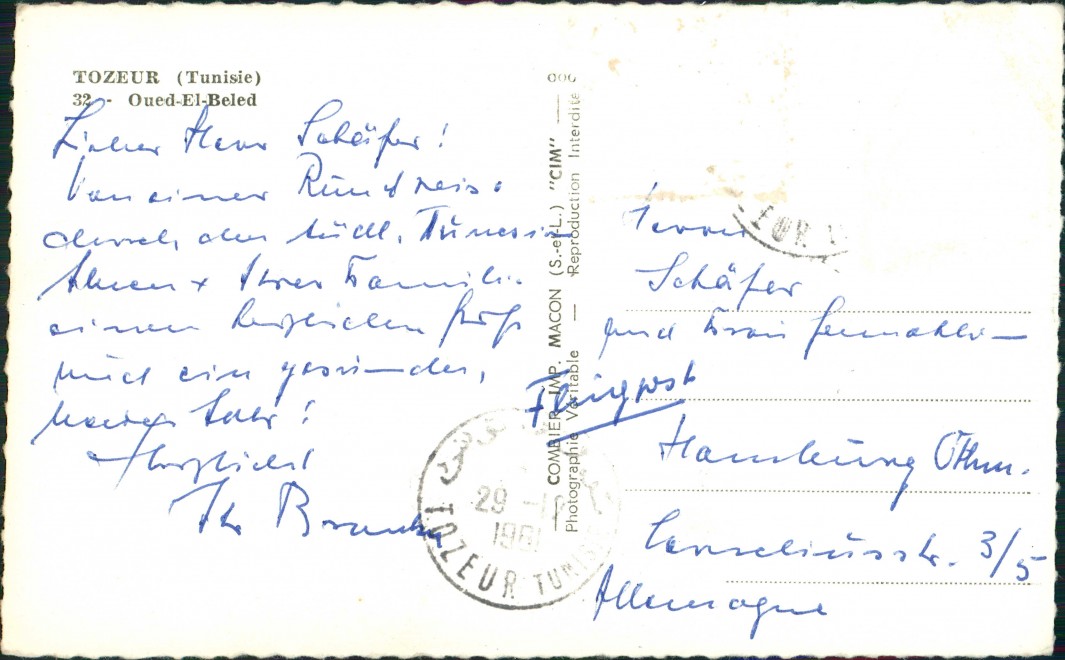 TOZEUR (Tunisie)
32 - Oued-El-Beled
Lieber Herr Schäfer!
Von einer Rundreise
durch den südl. Tunesien
Ihnen + Ihrer Familie
einen herzlichen Gruß
und ein gesundes,
neues Jahr!
Herzlichst
Ihr
COMBIER IMP. MACON (S.-et-L.) "CIM"
Photographie Véritable — Reproduction Interdite
Herrn
Schäfer
und Frau Gemahlin
Flugpost
Hamburg Othm.
3/5
Allemagne
29 -12
1961
TOZEUR TUNISIE